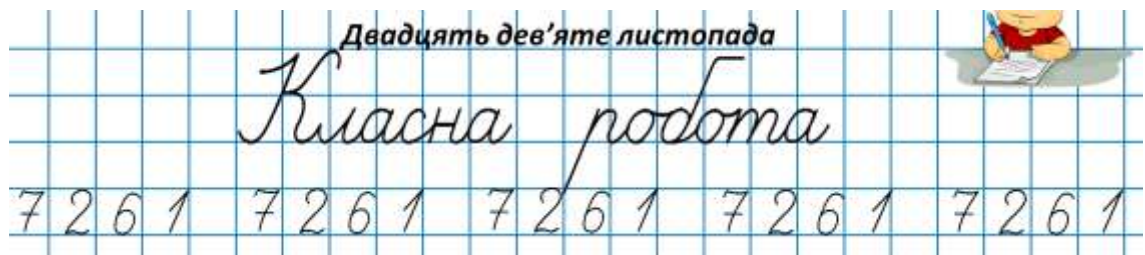 Двадцять дев’яте листопада
Класна робота
7 2 6 1 7 2 6 1 7 2 6 1 7 2 6 1 7 2 6 1